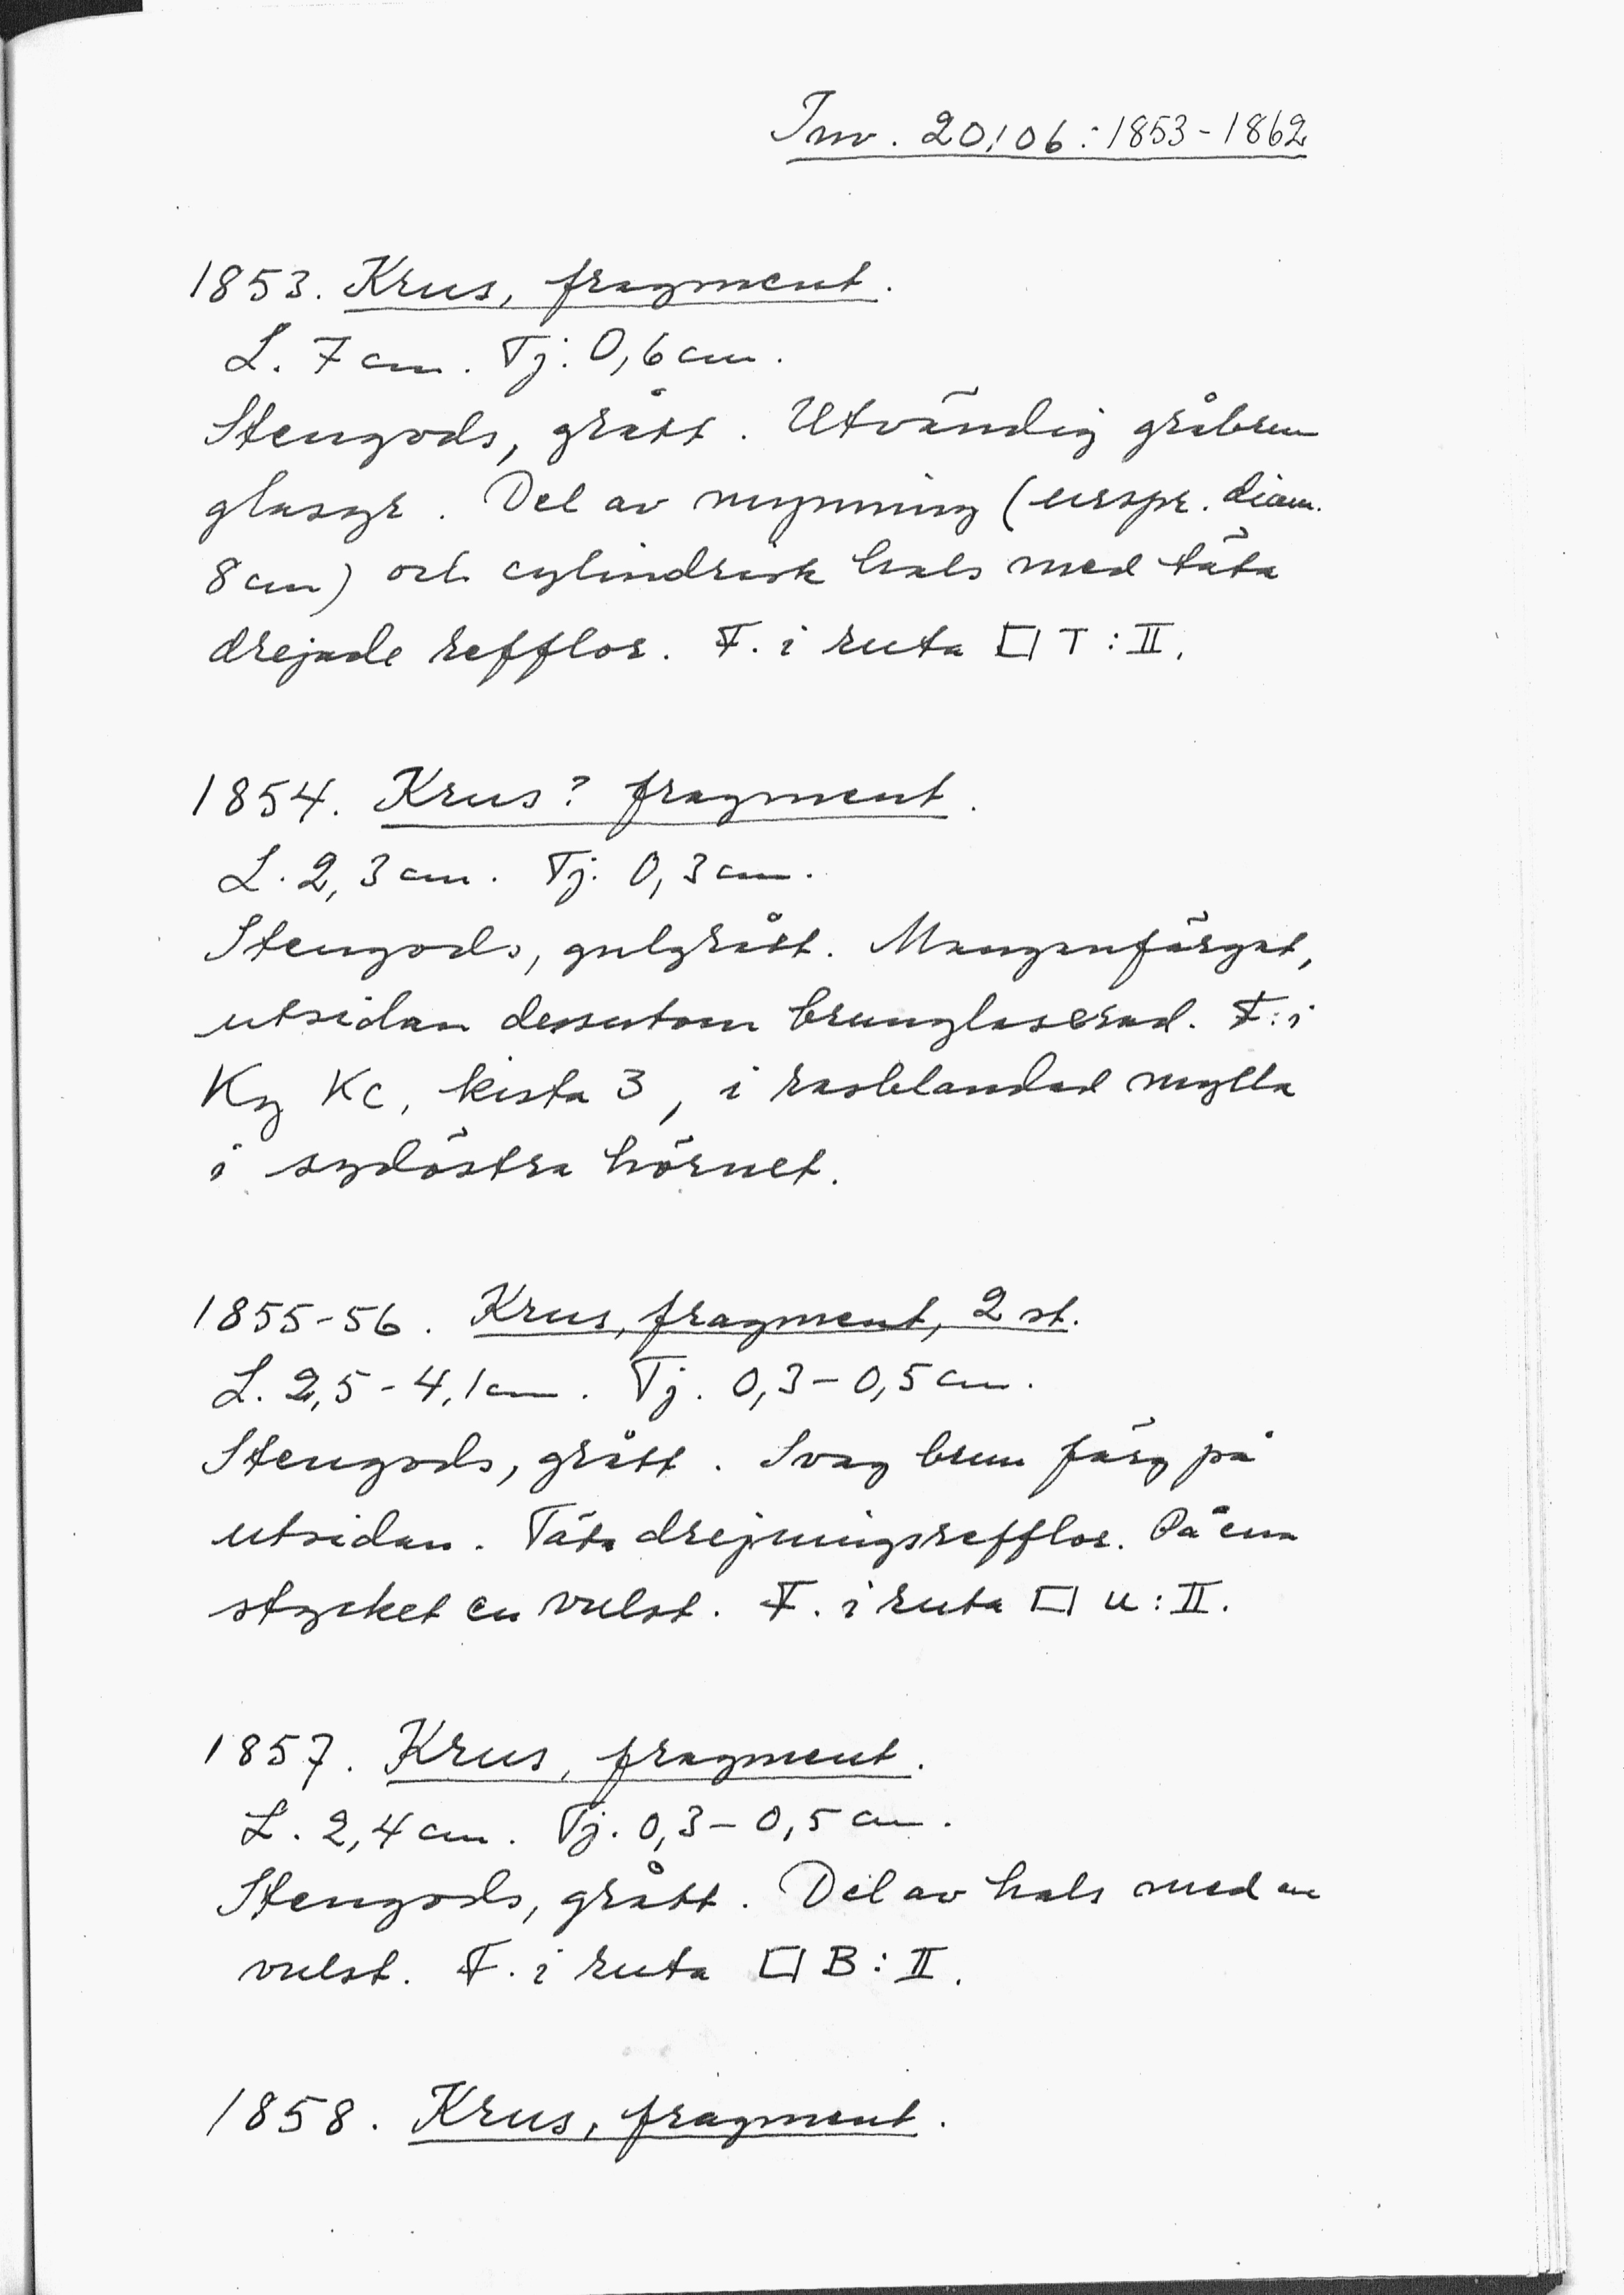 Inv. 20106:1853-1862
1853. Krus, fragment.
L. 7 cm. Tj. 0,6 cm.
Stengods, grått. Utvändig gråbrun
glasyr. Del av mynning (urspr. diam.
8 cm) och cylindrisk hals med täta
drejade refflor. F. i ruta □ T:II.
1854. Krus? fragment.
L. 2,3 cm. Tj. 0,3 cm.
Stengods, gulgrått. Manganfärgat,
utsidan dessutom brunglaserad. F. i
Kg Kc, kista 3, i rasblandad mylla
i sydöstra hörnet.
1855-56. Krus, fragment, 2 st.
L. 2,5-4,1 cm. Tj. 0,3-0,5 cm.
Stengods, grått. Svag brun färg på
utsidan. Täta drejningsrefflor. På ena
stycket en vulst. F. i ruta □ U:II.
1857. Krus, fragment.
L. 2,4 cm. Tj. 0,3-0,5 cm.
Stengods, grått. Del av hals med en
vulst. F. i ruta □ B:II.
1858. Krus, fragment.